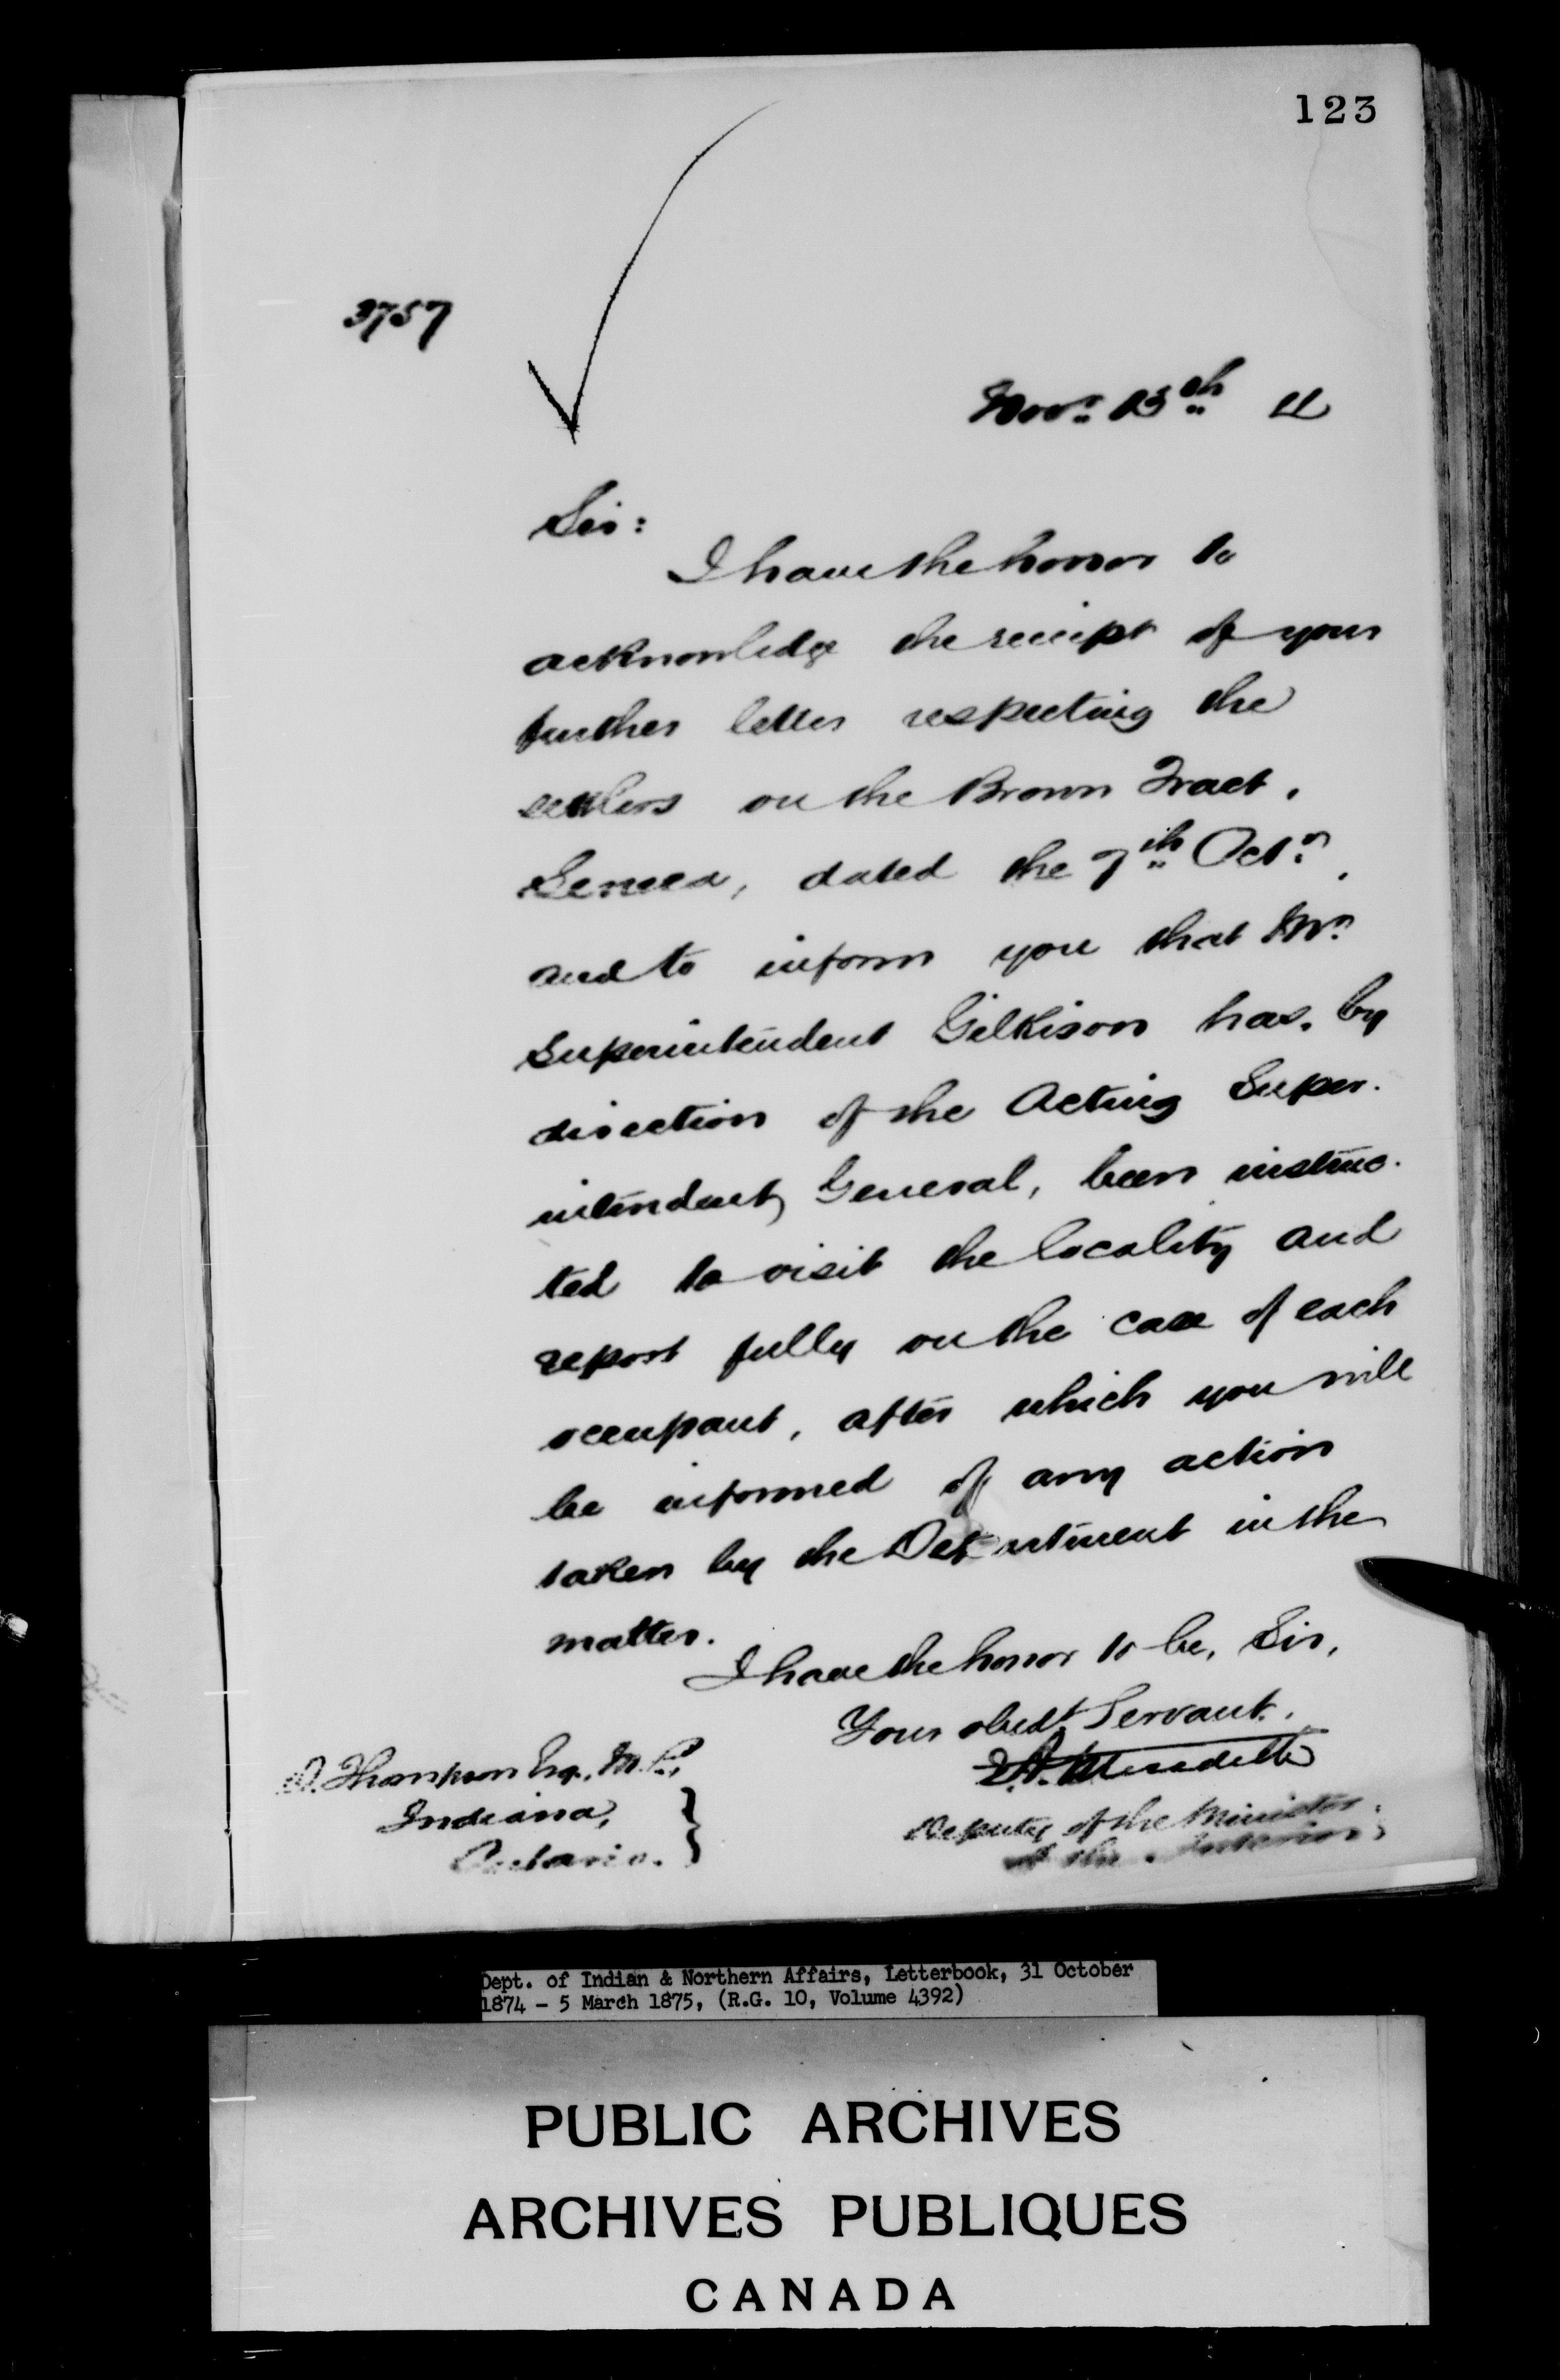 123
3757
Novr. 13th
Sir:
I have the honor to
acknowledge the receipt of your
further letter respecting the
settlers on the Brown Tract,
Seneca, dated the 7th Octr.,
and to inform you that Mr.
Superintendent Gilkison has, by
direction of the Acting Super-
intendent General, been instruc-
ted to visit the locality and
report fully on the case of each
occupant, after which you will
be informed of any action
taken by the Department in the
matter.
I have the honor to be, Sir,
Your obedt Servant.
E.A. Meredith
Deputy of the Minister
of the Interior.
D. Thompson Esq., M.P.,
Indiana,
Ontario.
Dept. of Indian & Northern Affairs, Letterbook, 31 October
1874 - 5 March 1875, (R.G. 10, Volume 4392)
PUBLIC ARCHIVES
ARCHIVES PUBLIQUES
CANADA